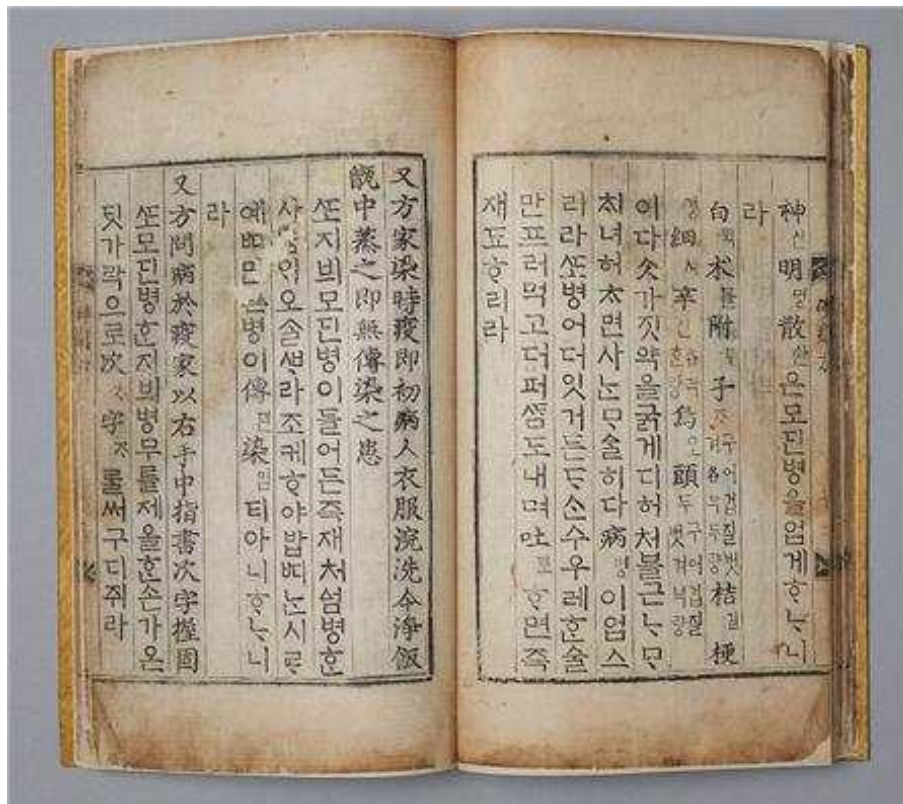 神신明명散산은모딘병을업게ᄒᆞᄂᆞ니
라
白ᄇᆡᆨ朮튤附부子ᄌᆞ구어겁질벗겨各각두량桔길梗
ᄀᆡᆼ細셰辛신各각ᄒᆞᆫ량烏오頭두구어겁질벗겨넉량
이다ᄉᆞᆺ가짓약을굵게디허처블근ᄂᆞᄆᆞ
치녀허ᄎᆞ면사ᄂᆞᆫᄆᆞᄉᆞᆯ히다病병이업스
리라ᄯᅩ병어더잇거든ᄃᆞᄉᆞᆫ수우레ᄒᆞᆫ술
만프러먹고더퍼ᄯᆞᆷ도내며吐토ᄒᆞ면즉
재됴ᄒᆞ리라
又方家染時疫即初病人衣服浣洗令淨飯
甑中蒸之即無傳染之患
ᄯᅩ지븨모딘병이들어든즉재처섬병ᄒᆞᆫ
사ᄅᆞᆷ의오ᄉᆞᆯᄲᆞ라조케ᄒᆞ야밥ᄠᅵᄂᆞᆫ시르
예ᄠᅵ면그병이傳뎐染염티아니ᄒᆞᄂᆞ니
라
又方問病於疫家以右手中指書次字握固
ᄯᅩ모딘병ᄒᆞᆫ지븨병무를제올ᄒᆞᆫ손가온
딧가락으로次ᄎᆞ字ᄌᆞ를써구디쥐라